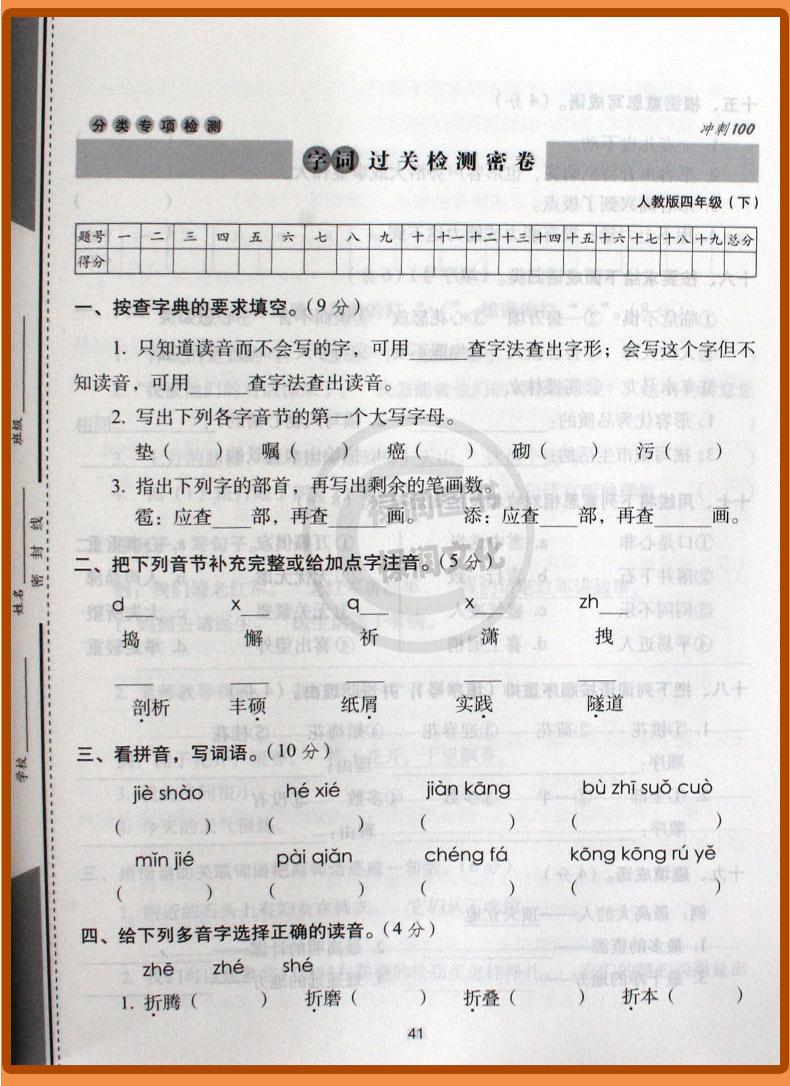 分类专项检测
冲刺100
字词过关检测密卷
人教版四年级（下）
题号 一 二 三 四 五 六 七 八 九 十 十一 十二 十三 十四 十五 十六 十七 十八 十九 总分
得分
一、按查字典的要求填空。（9分）
1. 只知道读音而不会写的字，可用______查字法查出字形；会写这个字但不
知读音，可用______查字法查出读音。
2. 写出下列各字音节的第一个大写字母。
垫（ ） 嘱（ ） 癌（ ） 砌（ ） 污（ ）
3. 指出下列字的部首，再写出剩余的笔画数。
雹：应查____部，再查____画。 添：应查____部，再查____画。
二、把下列音节补充完整或给加点字注音。（5分）
d___ x___ q___ x___ zh___
捣 懈 祈 潇 拽
____ ____ ____ ____ ____
剖析 丰硕 纸屑 实践 隧道
三、看拼音，写词语。（10分）
jiè shào hé xié jiàn kāng bù zhī suǒ cuò
（ ） （ ） （ ） （ ）
mǐn jié pài qiǎn chéng fá kōng kōng rú yě
（ ） （ ） （ ） （ ）
四、给下列多音字选择正确的读音。（4分）
zhē zhé shé
1. 折腾（ ） 折磨（ ） 折叠（ ） 折本（ ）
41
班级
姓名
学校
密封线
禄润图书
禄润文化